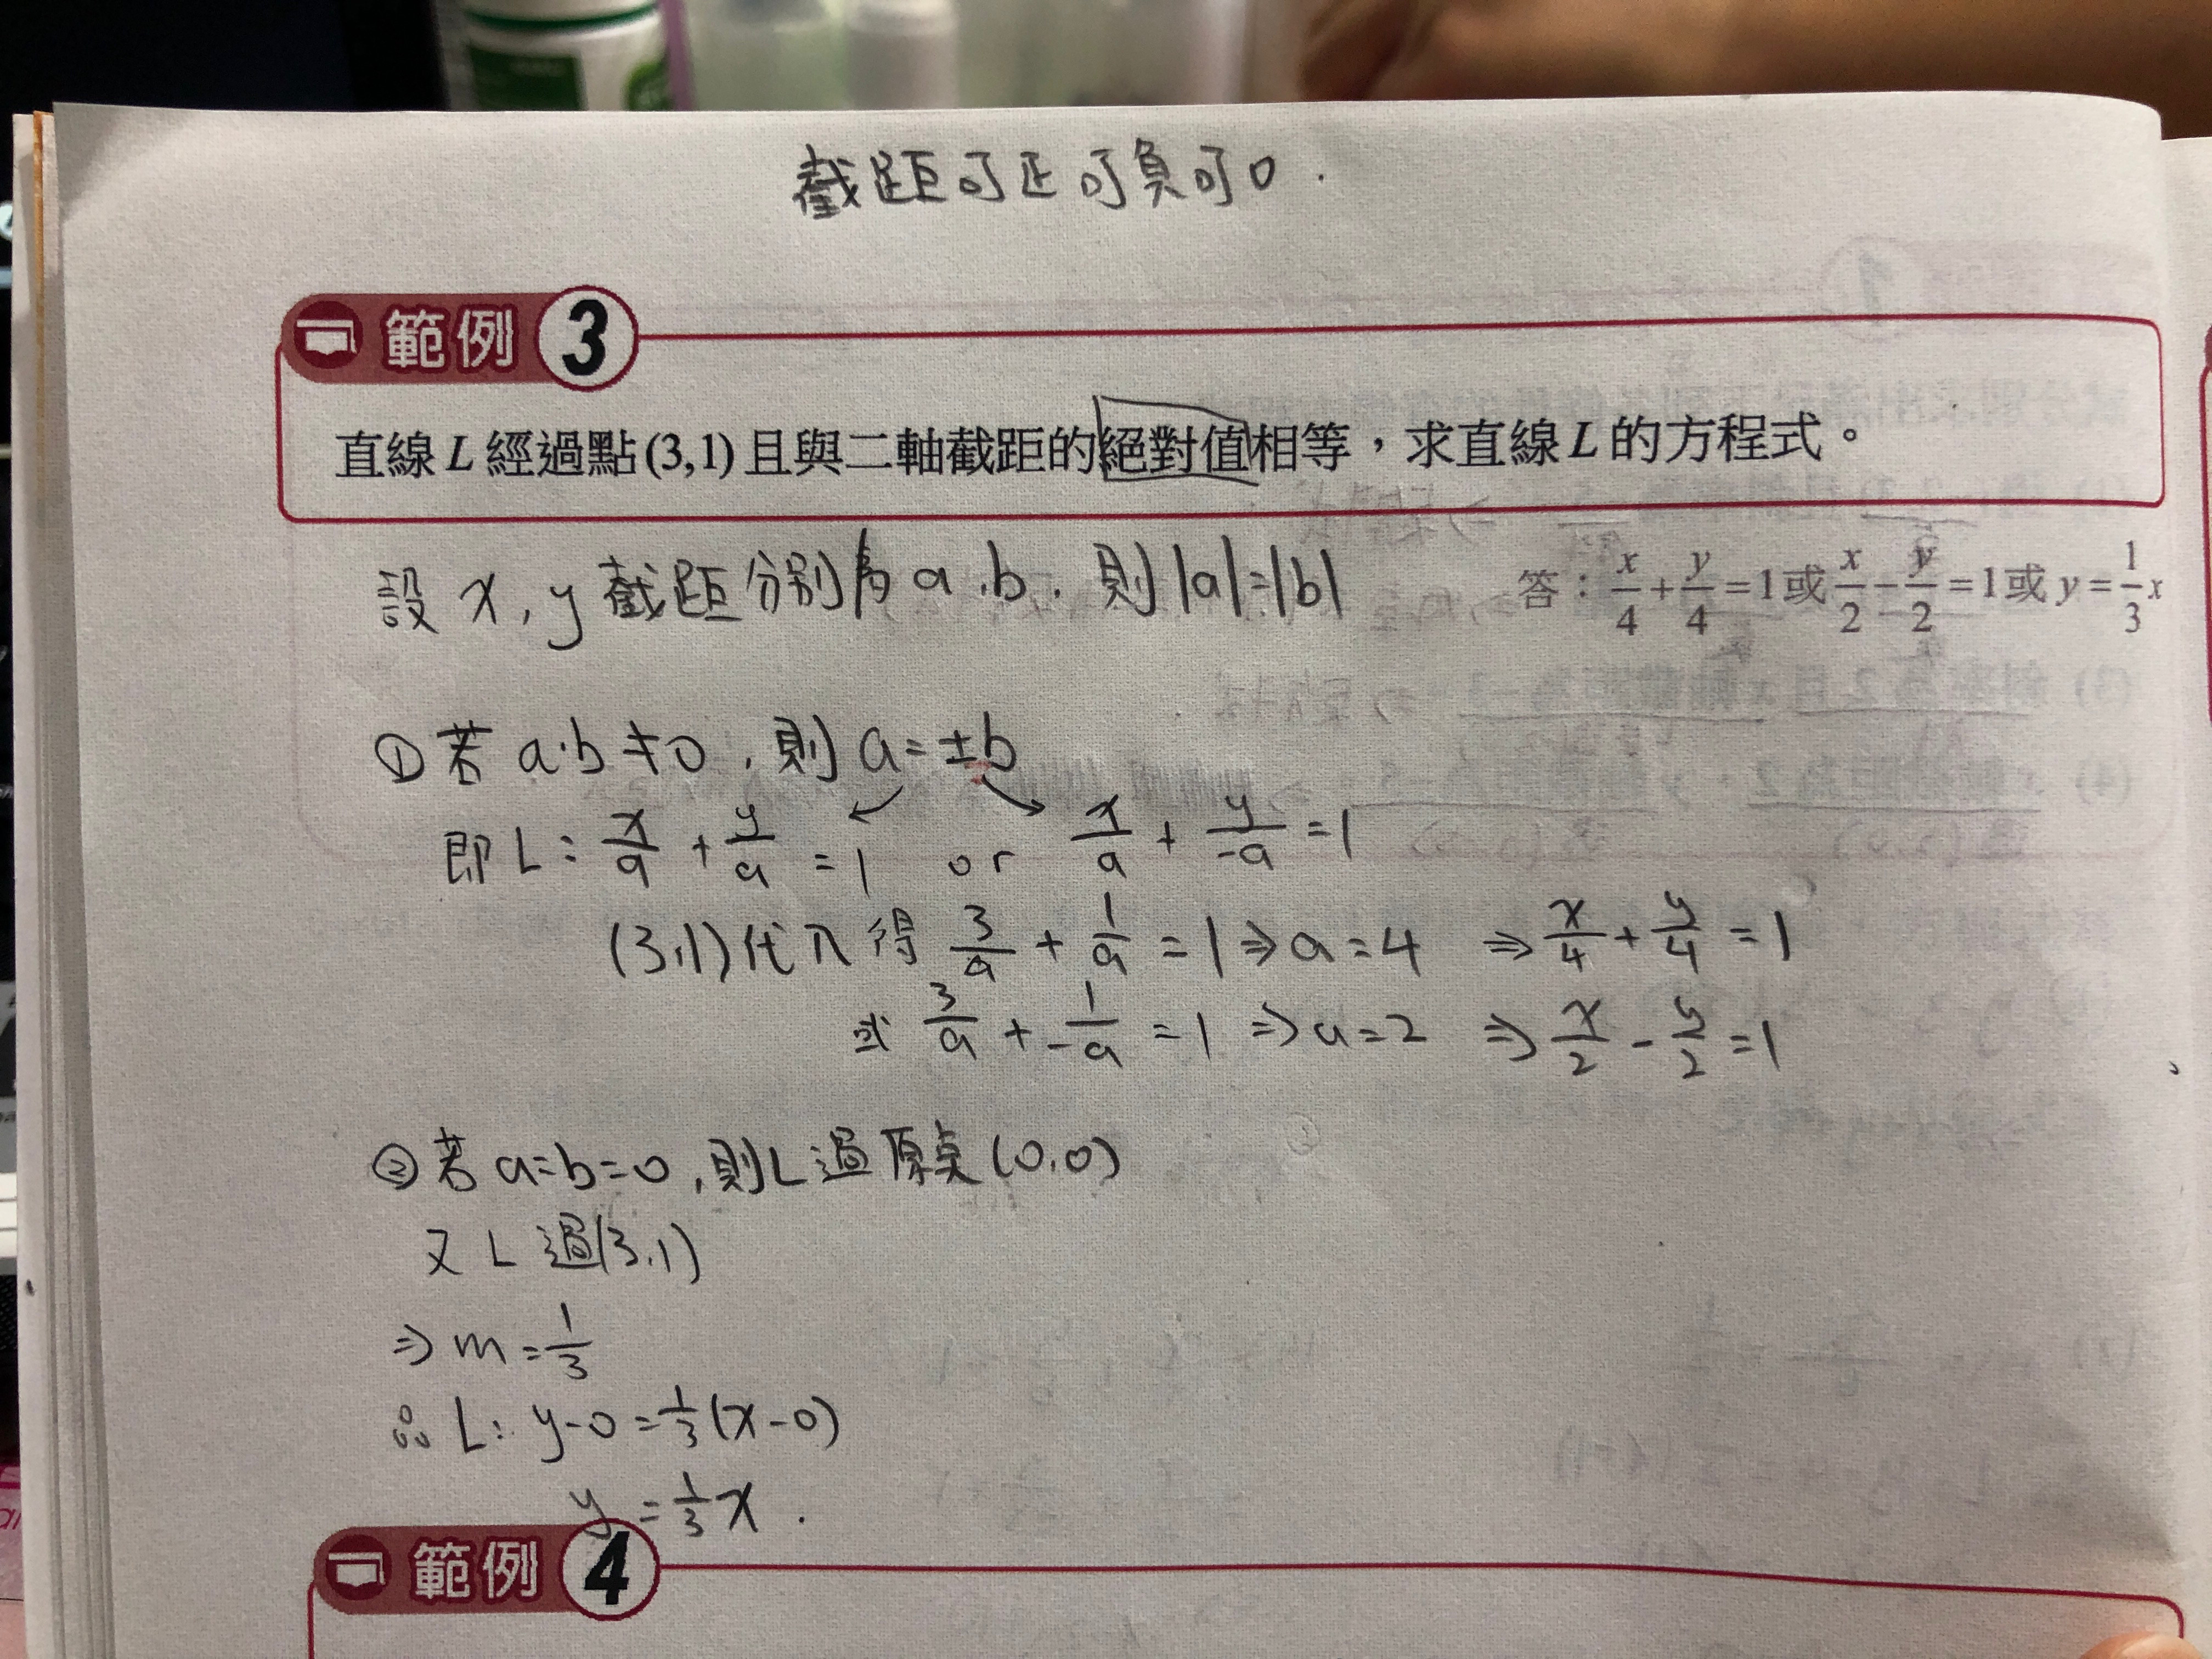 截距可正可負可0.
範例 3
直線L經過點(3,1)且與二軸截距的絕對值相等，求直線L的方程式。
設 x, y 截距分別為 a.b. 則|a|=|b|
答：x/4+y/4=1或x/2-y/2=1或y=1/3x
①若 a·b≠0, 則 a=±b
即 L: x/a + y/a = 1 or x/a + y/-a = 1
(3,1)代入得 3/a + 1/a = 1 ⇒ a=4 ⇒ x/4 + y/4 = 1
或 3/a + 1/-a = 1 ⇒ a=2 ⇒ x/2 - y/2 = 1
②若 a=b=0, 則L過原桌(0,0)
又 L 過(3,1)
⇒ m=1/3
∴ L: y-0=1/3(x-0)
y=1/3x.
範例 4